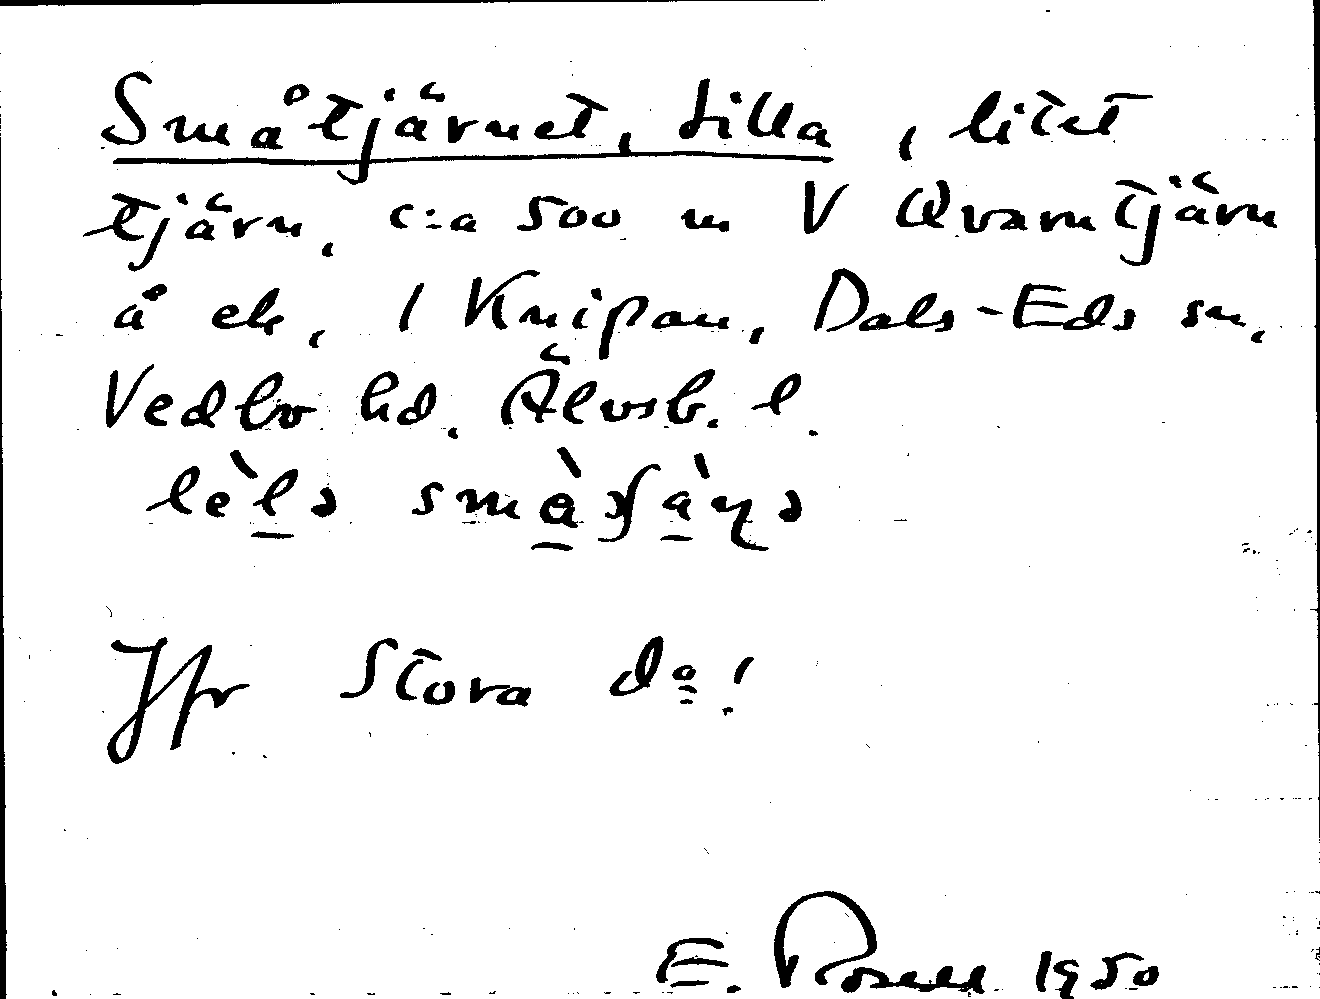 Småtjärnet, Lilla, litet
tjärn, c:a 500 m V Qvarntjärn
å ek. 1 Knipan, Dals-Eds sn.
Vedbo hd. Älvsb. l.
Jfr Stora d:o!
E. Rosell 1950